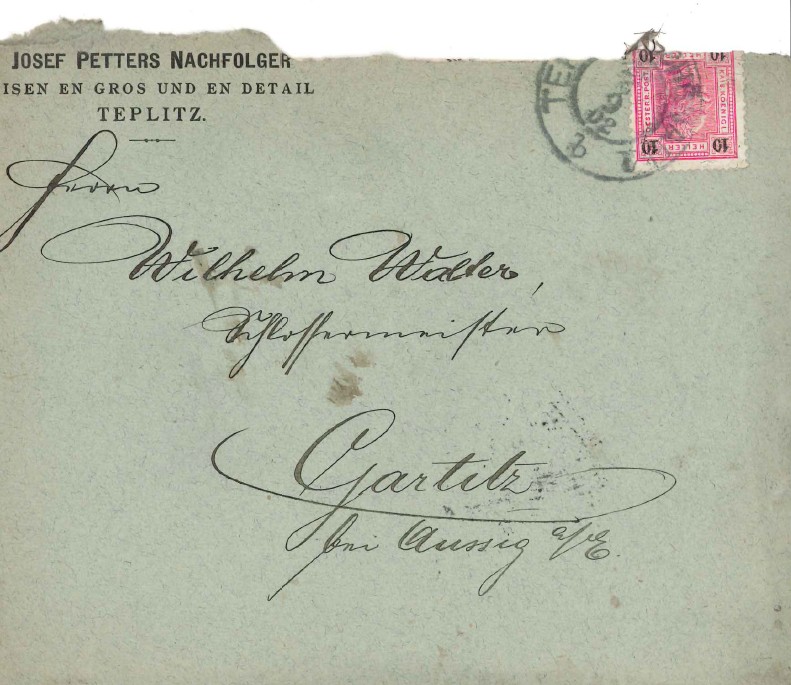 JOSEF PETTERS NACHFOLGER
ISEN EN GROS UND EN DETAIL
TEPLITZ.
Herrn
Wilhelm Walter,
Schlossermeister
Gartitz
bei Aussig a/E.
TE
10 10
KAIS. KOENIGL.
OESTERR. POST
HELLER
10 10